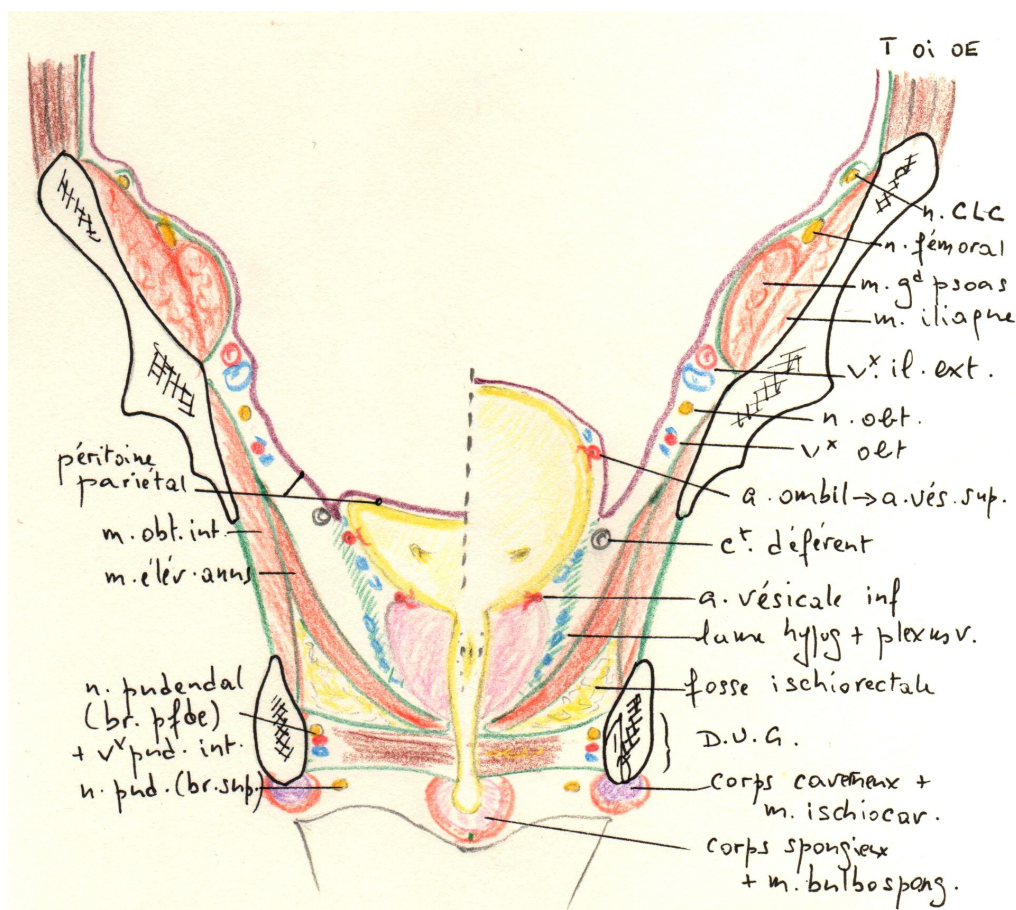 T Oi OE
n. CLC
n. fémoral
m. gd psoas
m. iliaque
vx. il. ext.
n. obt.
vx obt
a. ombil → a. vés. sup.
ct. déférent
a. vésicale inf
lame hypog + plexus v.
fosse ischiorectale
D.U.G.
corps caverneux +
m. ischiocav.
corps spongieux
+ m. bulbospong.
péritoine
pariétal
m. obt. int.
m. élév. anus
n. pudendal
(br. pfde)
+ vx pud. int.
n. pud. (br. sup.)